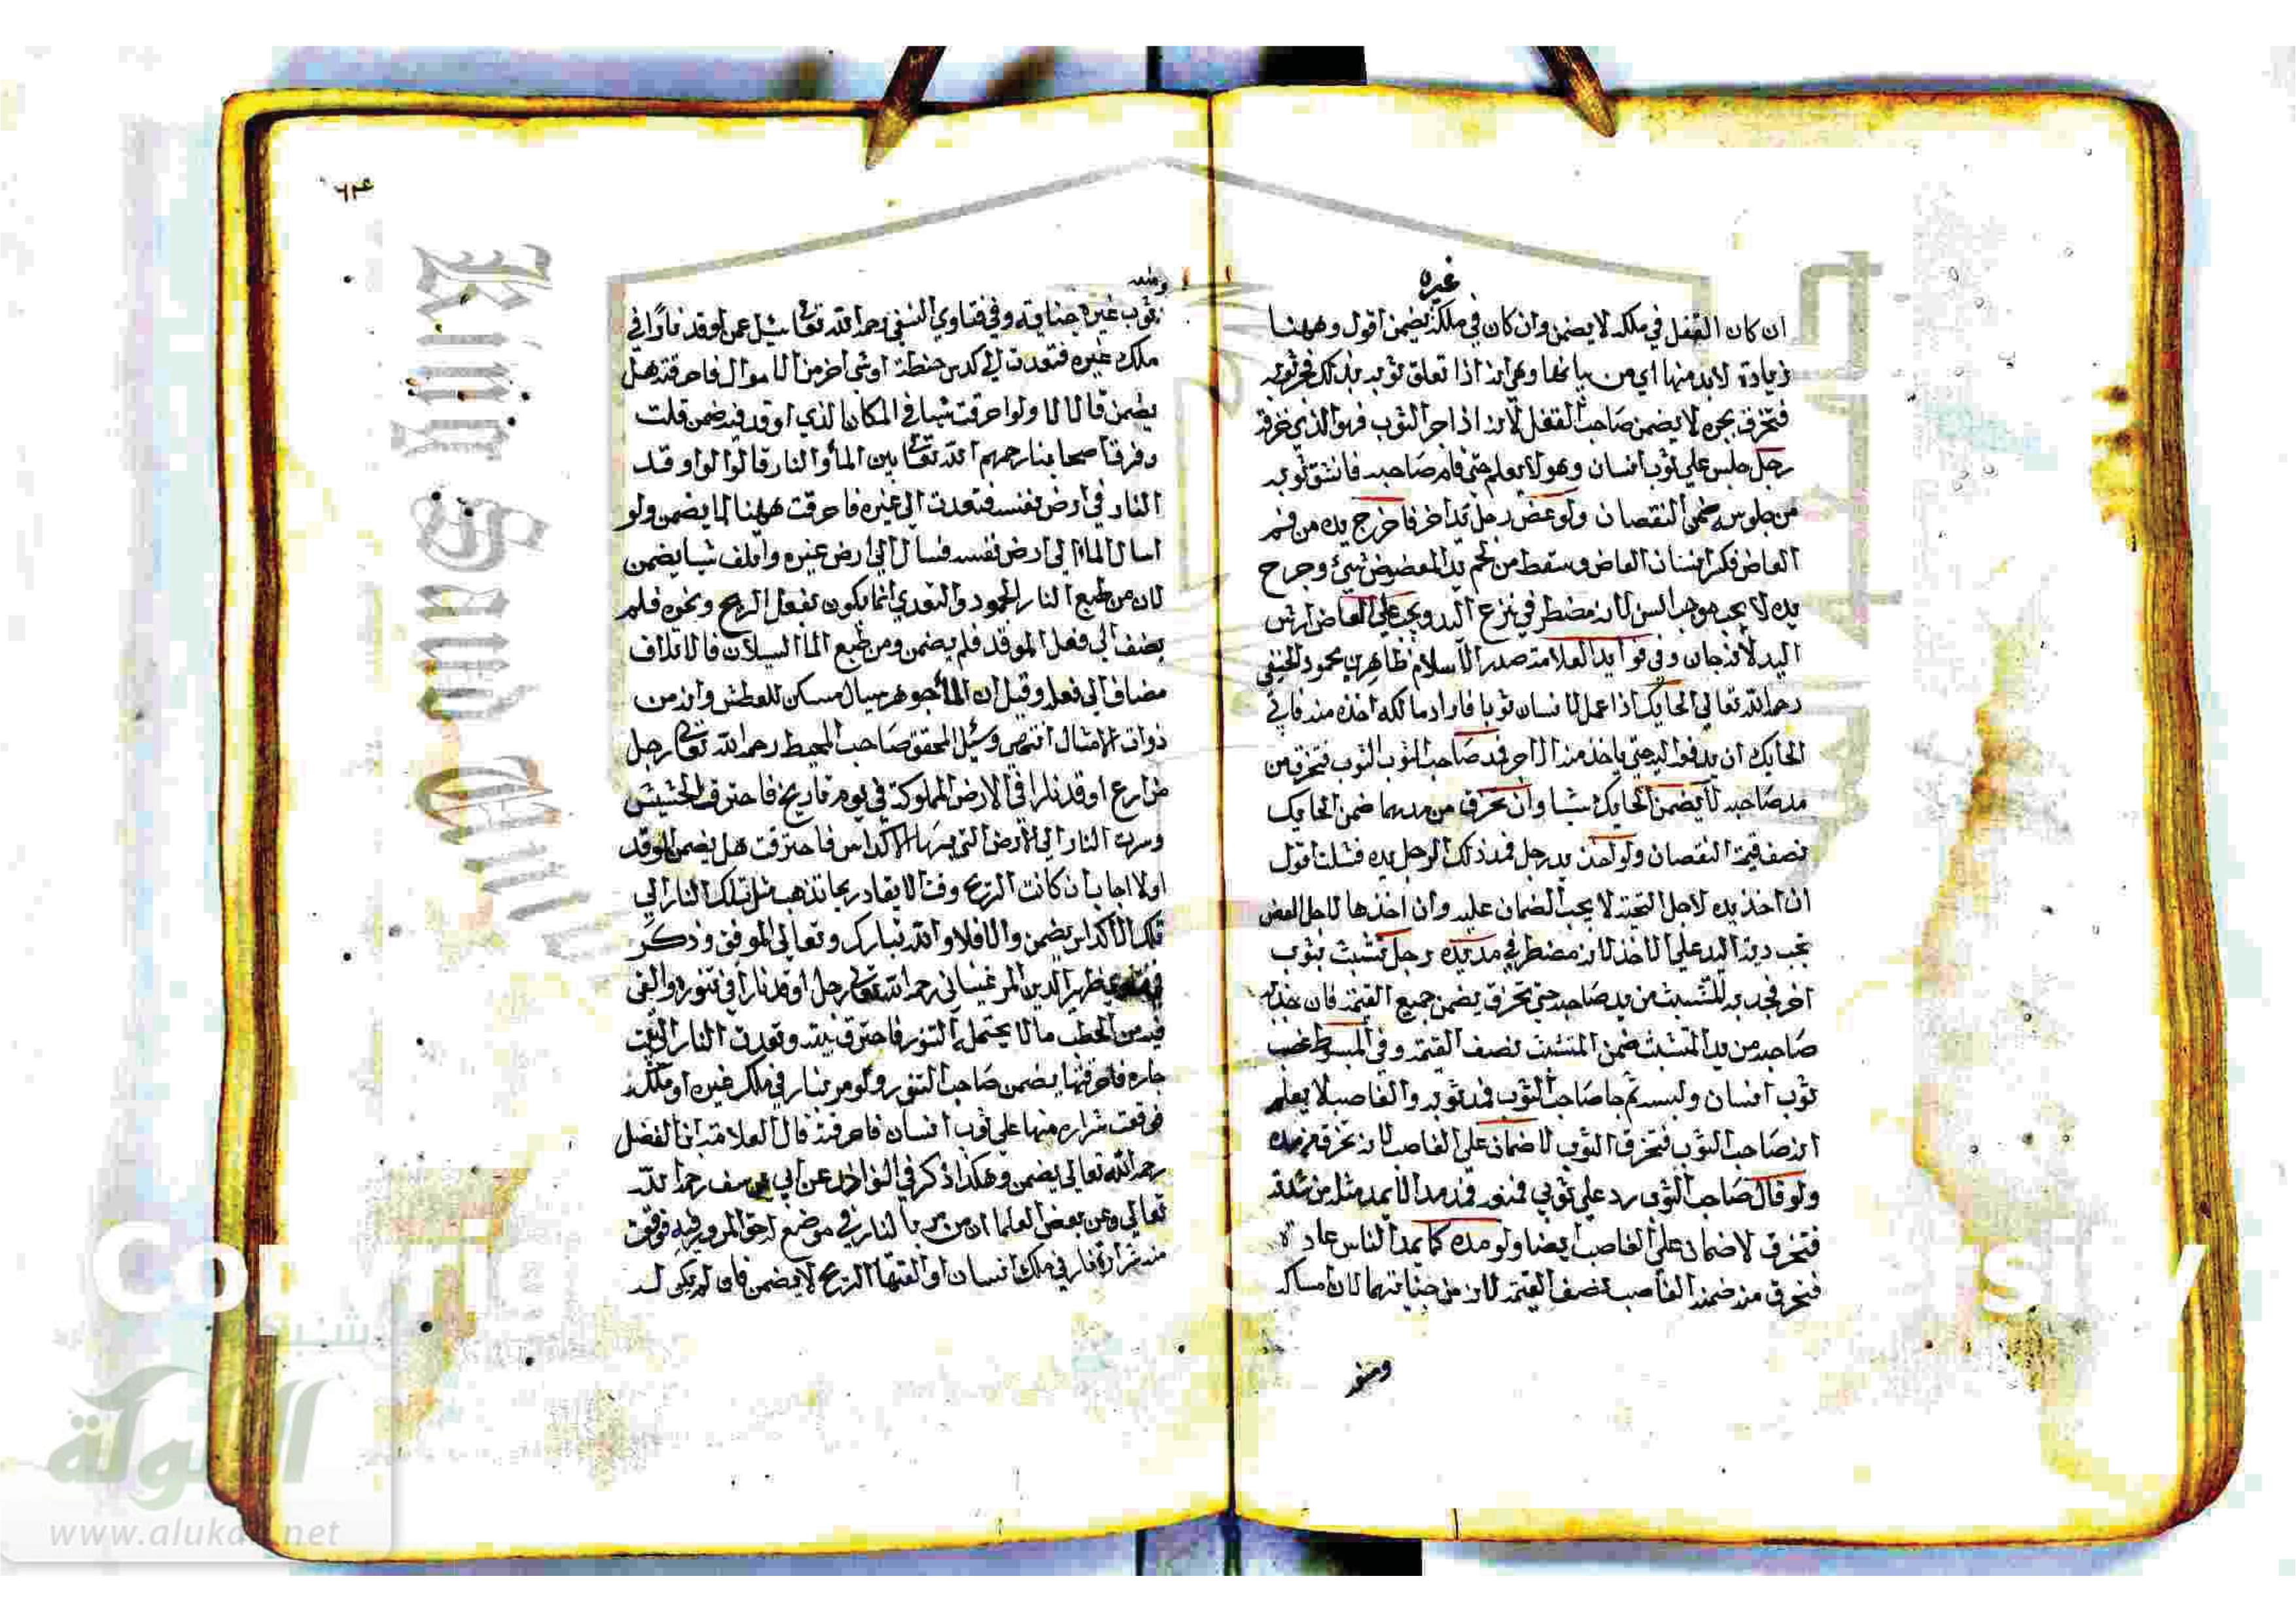 غيره
ان كان القفل في ملكه لا يضمن وان كان في ملك يضمن اقول وههنا
زيادة لابد منها اي من بيانها وهي انه اذا تعلق ثوبه بذلك فجر ثوبه
فتخرق بجره لا يضمن صاحب القفل لانه اذا جر الثوب فهو الذي خرقه
رجل جلس علي ثوب انسان وهو لا يعلم حتى قام صاحبه فانشق ثوبه
من جلوسه ضمن النقصان ولو عض رجل يد اخر فاخرج يده من فم
العاض فكسر اسنان العاض وسقط من لحم يد المعضوض شيئ وجرح
يده لا يجب موجب السن لانه مضطر في نزع اليد ويجب علي العاض ارش
اليد لانه جان وفي فوايد العلامة صدر الاسلام ظاهر بن محمود الحنفي
رحمه الله تعالي الحايك اذا عمل لانسان ثوبا فاراد مالكه اخذه منه فابي
الحايك ان يدفعه اليه حتى ياخذ منه الاجر فمد صاحب الثوب الثوب فتخرق من
مد صاحبه لا يضمن الحايك شيا وان تخرق من مدهما ضمن الحايك
نصف قيمة النقصان ولو اخذ بيد رجل فمد ذلك الرجل يده فشلت اقول
ان اخذ يده لاجل التحية لا يجب الضمان عليه وان اخذها لاجل العض
تجب دية اليد علي الاخذ لانه مضطر في مد يده رجل تشبث بثوب
اخر فجذبه المتشبث من يد صاحبه حتى تخرق يضمن جميع القيمة فان جذبه
صاحبه من يد المتشبث ضمن المتشبث نصف القيمة وفي المبسوط غصب
ثوب انسان ولبسه ثم جا صاحب الثوب فمد ثوبه والغاصب لا يعلم
انه صاحب الثوب فتخرق الثوب لا ضمان على الغاصب لانه تخرق من مده
ولو قال صاحب الثوب رد علي ثوبي فمنعه فمده مدا لا يمد مثله من شدته
فتخرق لا ضمان على الغاصب ايضا ولو مده كما يمد الناس عادة
فتخرق منه ضمنه الغاصب نصف القيمة لانه من جنايتهما لان امساك
ثوب غيره جناية وفي فتاوي النسفي رحمه الله تعا سئل عمن اوقد نارا في
ملك غيره فتعدت الي كدس حنطة او شي اخر من الاموال فاحرقته هل
يضمن قال لا ولو احرقت شيا في المكان الذي اوقد فيه ضمن قلت
وفرق اصحابنا رحمهم الله تعا بين الما والنار قالوا لو اوقد
النار في ارض نفسه فتعدت الي غيره فاحرقت ههنا لا يضمن ولو
اسال الما الي ارض نفسه فسال الي ارض غيره واتلف شيا يضمن
لان من طبع النار الخمود والتعدي انما يكون بفعل الريح ونحوه فلم
يضف الي فعل الموقد فلم يضمن ومن طبع الما السيلان فالاتلاف
مضاف الي فعله وقيل ان الما جوهر سيال مسكن للعطش وانه من
ذوات الامثال انتهى وسئل المحقق صاحب المحيط رحمه الله تعالى رجل
زارع اوقد نارا في الارض المملوكة في يوم ذا ريح فاحترق الحشيش
وسرت النار الي الارض التي فيها الاكداس فاحترقت هل يضمن الموقد
اولا اجاب ان كانت الريح وقت الايقاد ريحا تذهب مثل تلك النار الي
تلك الاكداس يضمن والا فلا والله تبارك وتعالي الموفق وذكر
ظهير الدين المرغيناني رحمه الله تعالى رجل اوقد نارا في تنوره والقى
فيه من الحطب ما لا يحتمله التنور فاحترق بيته وتعدت النار الي بيت
جاره فاحرقتها يضمن صاحب التنور ولو مر بنار في ملك غيره او ملكه
فوقعت شراره منها علي ثوب انسان فاحرقته قال العلامة ابن الفضل
رحمه الله تعالي يضمن وهكذا ذكر في النوادر عن ابي يوسف رحمه الله
تعالي وعن بعض العلما ان من مر بالنار في موضع له حق المرور فيه فوقعت
منه شرارة نار في ملك انسان او القتها الريح لا يضمن فان لم يكن له
www.alukah.net
الألوكة
King Saud